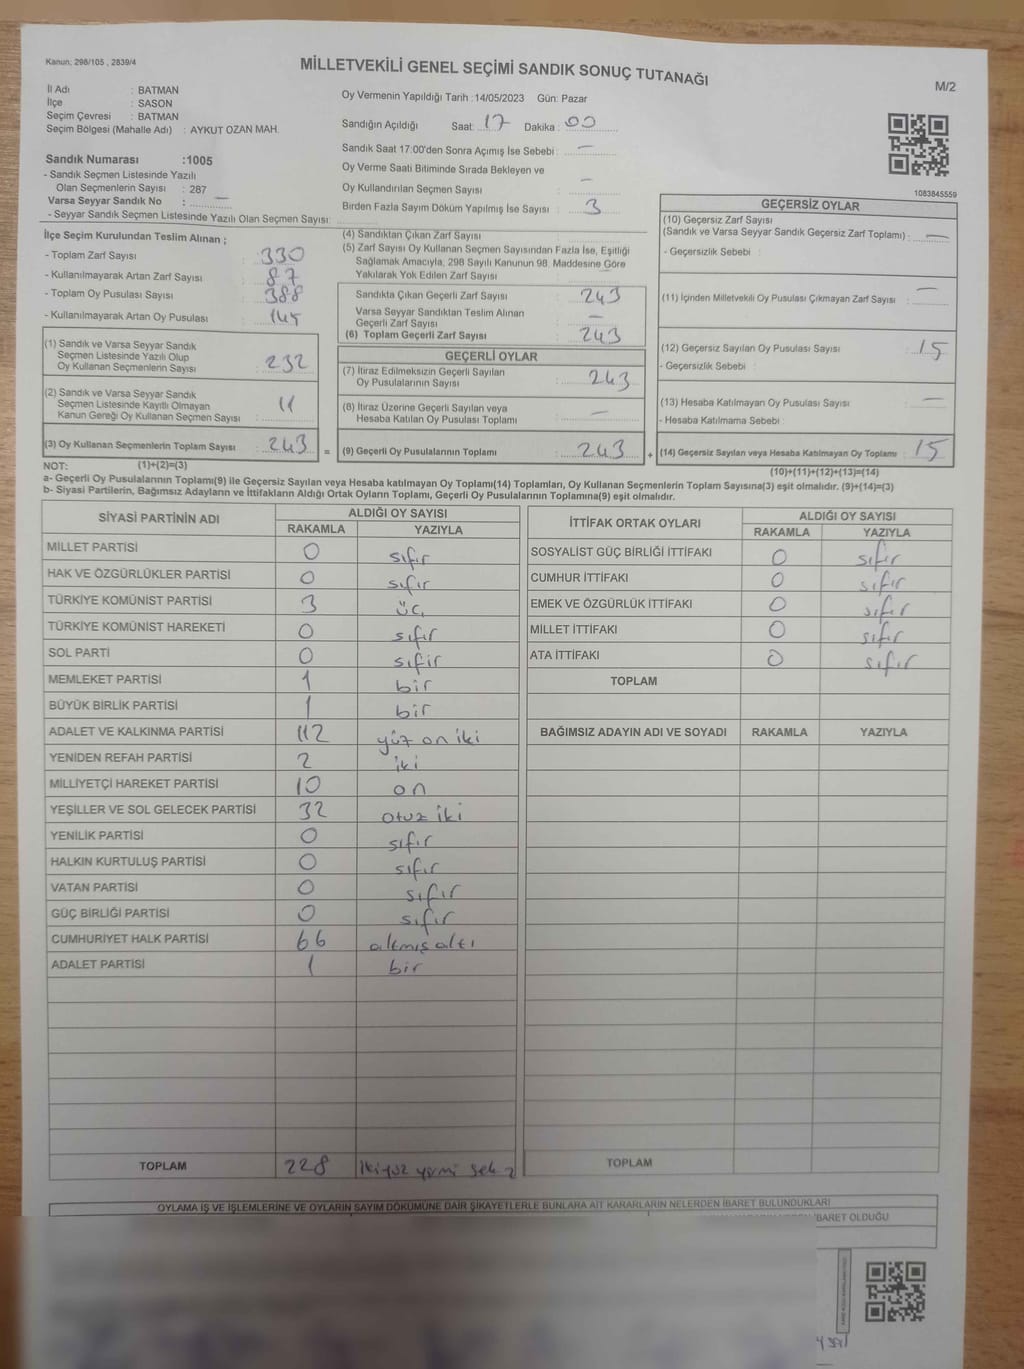 Kanun; 298/105 , 2839/4
MİLLETVEKİLİ GENEL SEÇİMİ SANDIK SONUÇ TUTANAĞI
M/2
İl Adı : BATMAN
İlçe : SASON
Seçim Çevresi : BATMAN
Seçim Bölgesi (Mahalle Adı) : AYKUT OZAN MAH.
Oy Vermenin Yapıldığı Tarih :14/05/2023 Gün: Pazar
Sandığın Açıldığı Saat: 17 Dakika : 00
Sandık Saat 17:00'den Sonra Açımış İse Sebebi : —
Oy Verme Saati Bitiminde Sırada Bekleyen ve
Oy Kullandırılan Seçmen Sayısı : —
Birden Fazla Sayım Döküm Yapılmış İse Sayısı : 3
Sandık Numarası :1005
- Sandık Seçmen Listesinde Yazılı
Olan Seçmenlerin Sayısı : 287
Varsa Seyyar Sandık No : —
- Seyyar Sandık Seçmen Listesinde Yazılı Olan Seçmen Sayısı:
1083845559
İlçe Seçim Kurulundan Teslim Alınan ;
- Toplam Zarf Sayısı : 330
- Kullanılmayarak Artan Zarf Sayısı : 87
- Toplam Oy Pusulası Sayısı : 388
- Kullanılmayarak Artan Oy Pusulası : 145
(1) Sandık ve Varsa Seyyar Sandık
Seçmen Listesinde Yazılı Olup
Oy Kullanan Seçmenlerin Sayısı : 232
(2) Sandık ve Varsa Seyyar Sandık
Seçmen Listesinde Kayıtlı Olmayan
Kanun Gereği Oy Kullanan Seçmen Sayısı : 11
(3) Oy Kullanan Seçmenlerin Toplam Sayısı : 243 =
(4) Sandıktan Çıkan Zarf Sayısı :
(5) Zarf Sayısı Oy Kullanan Seçmen Sayısından Fazla İse, Eşitliği
Sağlamak Amacıyla, 298 Sayılı Kanunun 98. Maddesine Göre
Yakılarak Yok Edilen Zarf Sayısı :
Sandıkta Çıkan Geçerli Zarf Sayısı : 243
Varsa Seyyar Sandıktan Teslim Alınan
Geçerli Zarf Sayısı : —
(6) Toplam Geçerli Zarf Sayısı : 243
GEÇERLİ OYLAR
(7) İtiraz Edilmeksizin Geçerli Sayılan
Oy Pusulalarının Sayısı : 243
(8) İtiraz Üzerine Geçerli Sayılan veya
Hesaba Katılan Oy Pusulası Toplamı : —
(9) Geçerli Oy Pusulalarının Toplamı : 243 +
GEÇERSİZ OYLAR
(10) Geçersiz Zarf Sayısı
(Sandık ve Varsa Seyyar Sandık Geçersiz Zarf Toplamı) : —
- Geçersizlik Sebebi :
(11) İçinden Milletvekili Oy Pusulası Çıkmayan Zarf Sayısı : —
(12) Geçersiz Sayılan Oy Pusulası Sayısı : 15
- Geçersizlik Sebebi :
(13) Hesaba Katılmayan Oy Pusulası Sayısı : —
- Hesaba Katılmama Sebebi :
(14) Geçersiz Sayılan veya Hesaba Katılmayan Oy Toplamı : 15
NOT: (1)+(2)=(3)
(10)+(11)+(12)+(13)=(14)
a- Geçerli Oy Pusulalarının Toplamı(9) ile Geçersiz Sayılan veya Hesaba katılmayan Oy Toplamı(14) Toplamları, Oy Kullanan Seçmenlerin Toplam Sayısına(3) eşit olmalıdır. (9)+(14)=(3)
b- Siyasi Partilerin, Bağımsız Adayların ve İttifakların Aldığı Ortak Oyların Toplamı, Geçerli Oy Pusulalarının Toplamına(9) eşit olmalıdır.
SİYASİ PARTİNİN ADI ALDIĞI OY SAYISI
RAKAMLA YAZIYLA
MİLLET PARTİSİ 0 sıfır
HAK VE ÖZGÜRLÜKLER PARTİSİ 0 sıfır
TÜRKİYE KOMÜNİST PARTİSİ 3 üç
TÜRKİYE KOMÜNİST HAREKETİ 0 sıfır
SOL PARTİ 0 sıfır
MEMLEKET PARTİSİ 1 bir
BÜYÜK BİRLİK PARTİSİ 1 bir
ADALET VE KALKINMA PARTİSİ 112 yüz on iki
YENİDEN REFAH PARTİSİ 2 iki
MİLLİYETÇİ HAREKET PARTİSİ 10 on
YEŞİLLER VE SOL GELECEK PARTİSİ 32 otuz iki
YENİLİK PARTİSİ 0 sıfır
HALKIN KURTULUŞ PARTİSİ 0 sıfır
VATAN PARTİSİ 0 sıfır
GÜÇ BİRLİĞİ PARTİSİ 0 sıfır
CUMHURİYET HALK PARTİSİ 66 altmış altı
ADALET PARTİSİ 1 bir
TOPLAM 228 ikiyüz yirmi sekiz
İTTİFAK ORTAK OYLARI ALDIĞI OY SAYISI
RAKAMLA YAZIYLA
SOSYALİST GÜÇ BİRLİĞİ İTTİFAKI 0 sıfır
CUMHUR İTTİFAKI 0 sıfır
EMEK VE ÖZGÜRLÜK İTTİFAKI 0 sıfır
MİLLET İTTİFAKI 0 sıfır
ATA İTTİFAKI 0 sıfır
TOPLAM
BAĞIMSIZ ADAYIN ADI VE SOYADI RAKAMLA YAZIYLA
TOPLAM
OYLAMA İŞ VE İŞLEMLERİNE VE OYLARIN SAYIM DÖKÜMÜNE DAİR ŞİKAYETLERLE BUNLARA AİT KARARLARIN NELERDEN İBARET BULUNDUKLARI
İBARET OLDUĞU